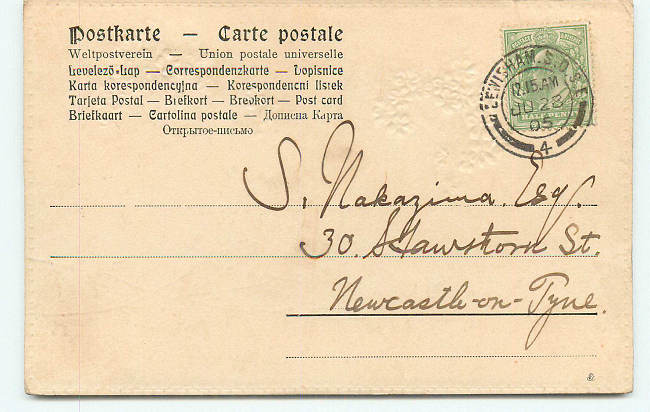 Postkarte — Carte postale
Weltpostverein — Union postale universelle
Levelező-Lap — Correspondenzkarte — Dopisnice
Karta korespondencyjna — Korespondencni listek
Tarjeta Postal — Brefkort — Brevkort — Post card
Briefkaart — Cartolina postale — Дописна Карта
Открытое-письмо
LEWISHAM. S.O. S.E.
12.15.AM
JU 28
05
4
HALFPENNY
S. Nakazima. Esq.
30. Hawthorn St.
Newcastle-on-Tyne.